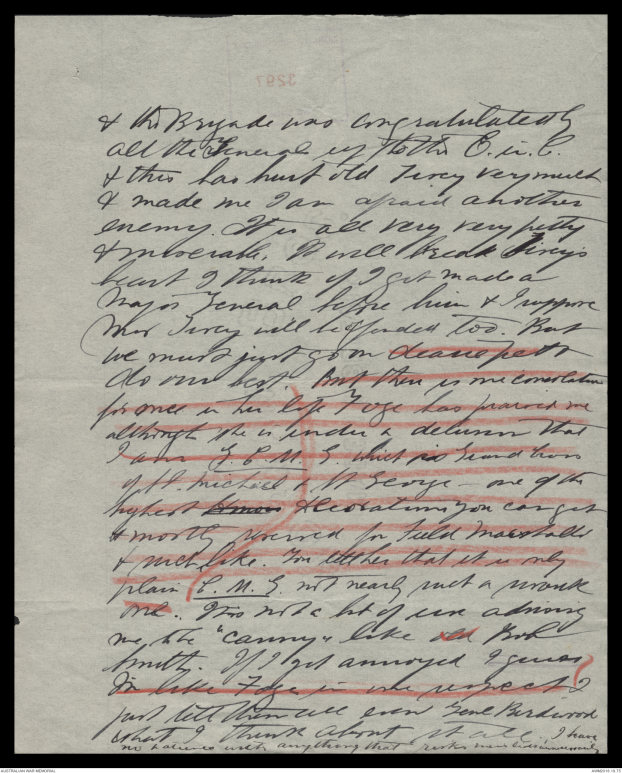 3297
& the Brigade was congratulated by
all the Generals up to the C. in C.
& this has hurt old Tivey very much
& made me I am afraid another
enemy. It is all very very petty
& miserable. It will break Tivey's
heart I think if I get made a
Major General before him & I suppose
Mrs Tivey will be offended too. But
we must just go on dearie pet &
do our best. But there is one consolation
for once in her life Foge has praised me
although she is under a delusion that
I am G.C.M.G. which is Grand Cross
of St. Michael & St George - one of the
highest decorations you can get
& mostly reserved for Field Marshalls
& such like. You tell her that it is only
plain C.M.G. not nearly such a swank
one. It is not a bit of use advising
me to be "canny" like old Bob
Smith. If I get annoyed I guess
I'm like Foge in one respect I
just tell them all even Genl Birdwood
what I think about it all, I have
no patience with anything that risks men's lives unnecessarily
AUSTRALIAN WAR MEMORIAL